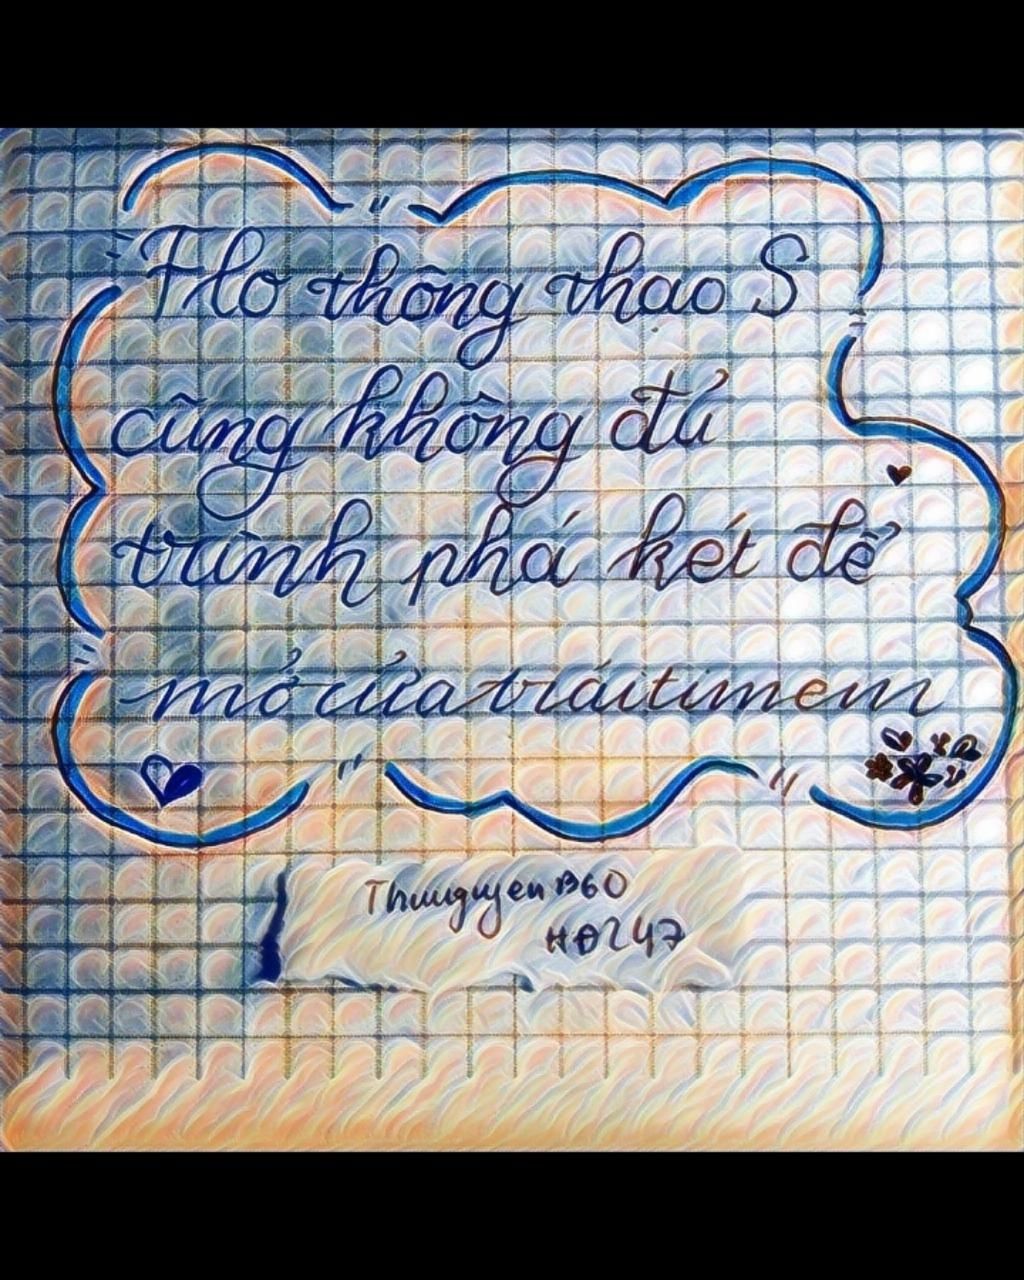 Flo thông thạo S
cũng không đủ
trình phá két để
mở cửa trái tim em
Thunguyen1360
HĐ247